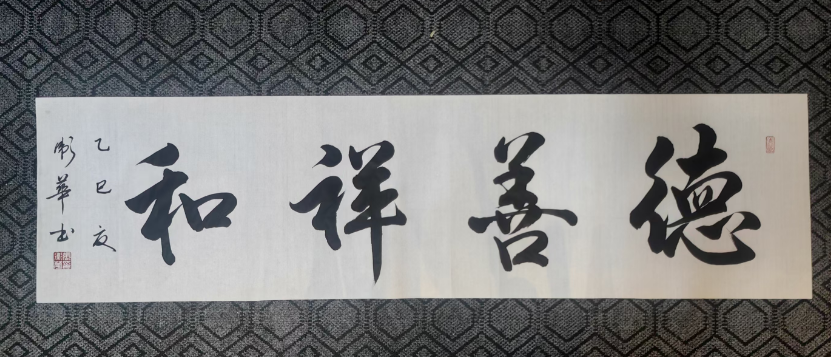 德善祥和
乙巳夏
衛華书